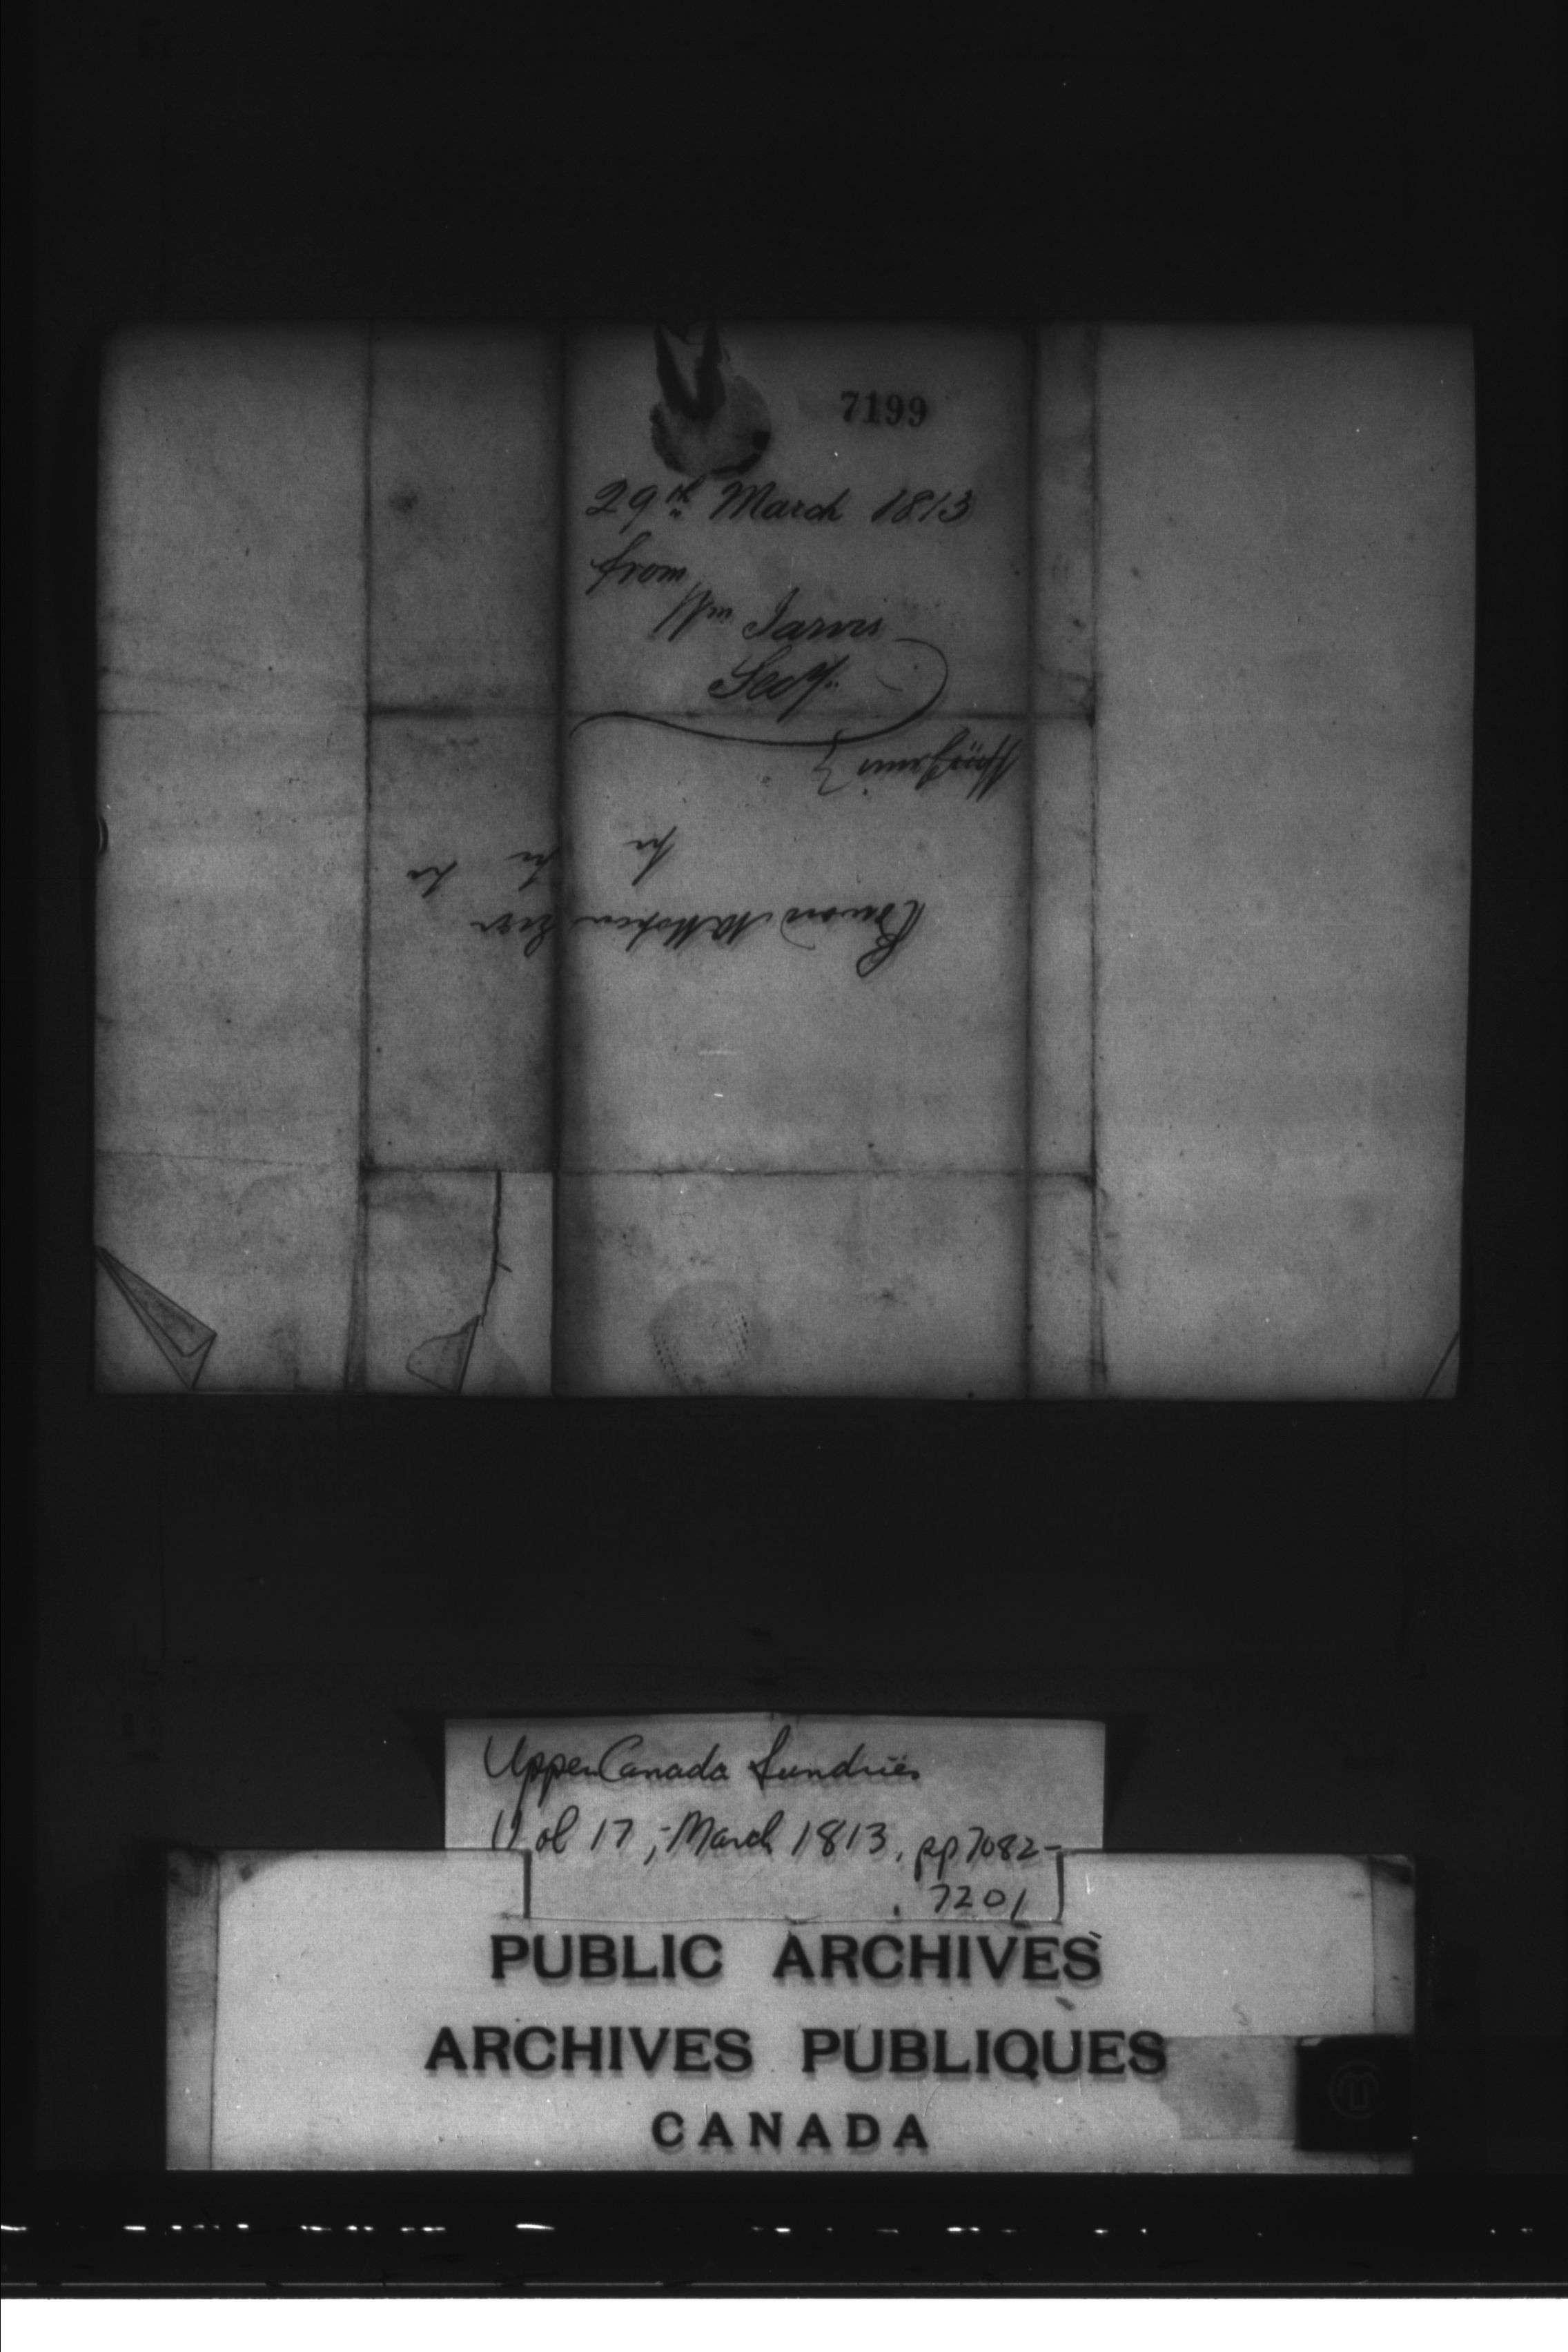 7199
29th March 1813
from
Wm Jarvis
Secy.
Wm Jarvis }
Edward McMahon Esqr
&c &c &c
Upper Canada Sundries
Vol 17, March 1813, pp 7082-
7201
PUBLIC ARCHIVES
ARCHIVES PUBLIQUES
CANADA